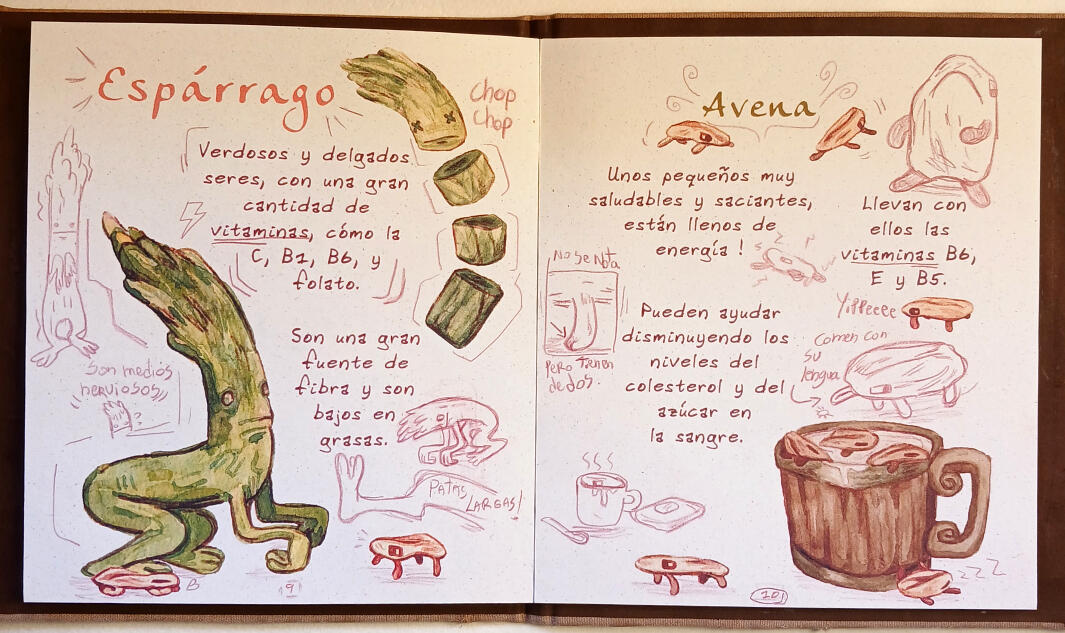 Espárrago
Chop
Chop
Verdosos y delgados
seres, con una gran
cantidad de
vitaminas, cómo la
C, B1, B6, y
folato.
Son una gran
fuente de
fibra y son
bajos en
grasas.
Son medios
nerviosos
?
PATAS
LARGAS!
B
9
Avena
Unos pequeños muy
saludables y saciantes,
están llenos de
energía !
Llevan con
ellos las
vitaminas B6,
E y B5.
No se Nota
Pero tienen
dedos.
Pueden ayudar
disminuyendo los
niveles del
colesterol y del
azúcar en
la sangre.
Yiffeeee
comen con
su
lengua
zzz
10